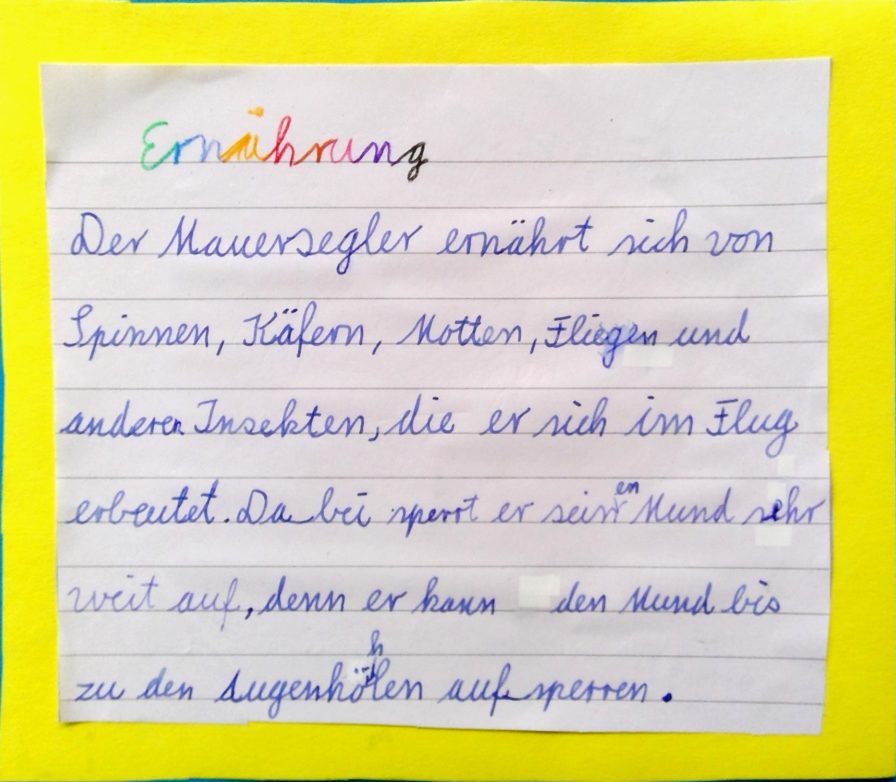 Ernährung
Der Mauersegler ernährt sich von
Spinnen, Käfern, Motten, Fliegen und
anderen Insekten, die er sich im Flug
erbeutet. Da bei sperrt er seinen Mund sehr
weit auf, denn er kann den Mund bis
zu den Augenhöhlen aufsperren.